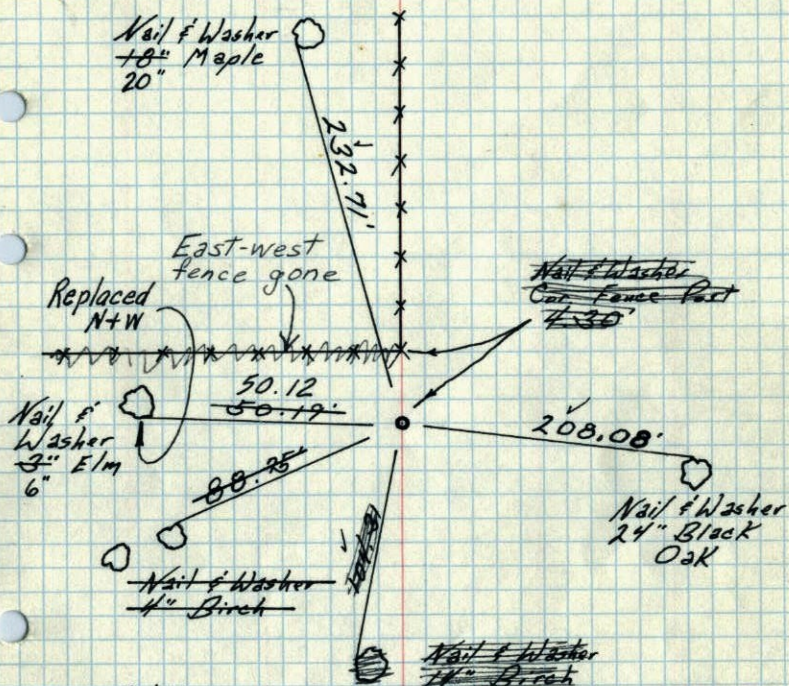 Nail & Washer
18" Maple
20"
232.71'
East-west
fence gone
Replaced
N+W
Nail & Washer
Cor Fence Post
4.30'
50.12
50.19'
208.08'
Nail &
Washer
3" Elm
6"
88.75'
Nail & Washer
24" Black
Oak
Nail & Washer
4" Birch
Nail & Washer
14" Birch